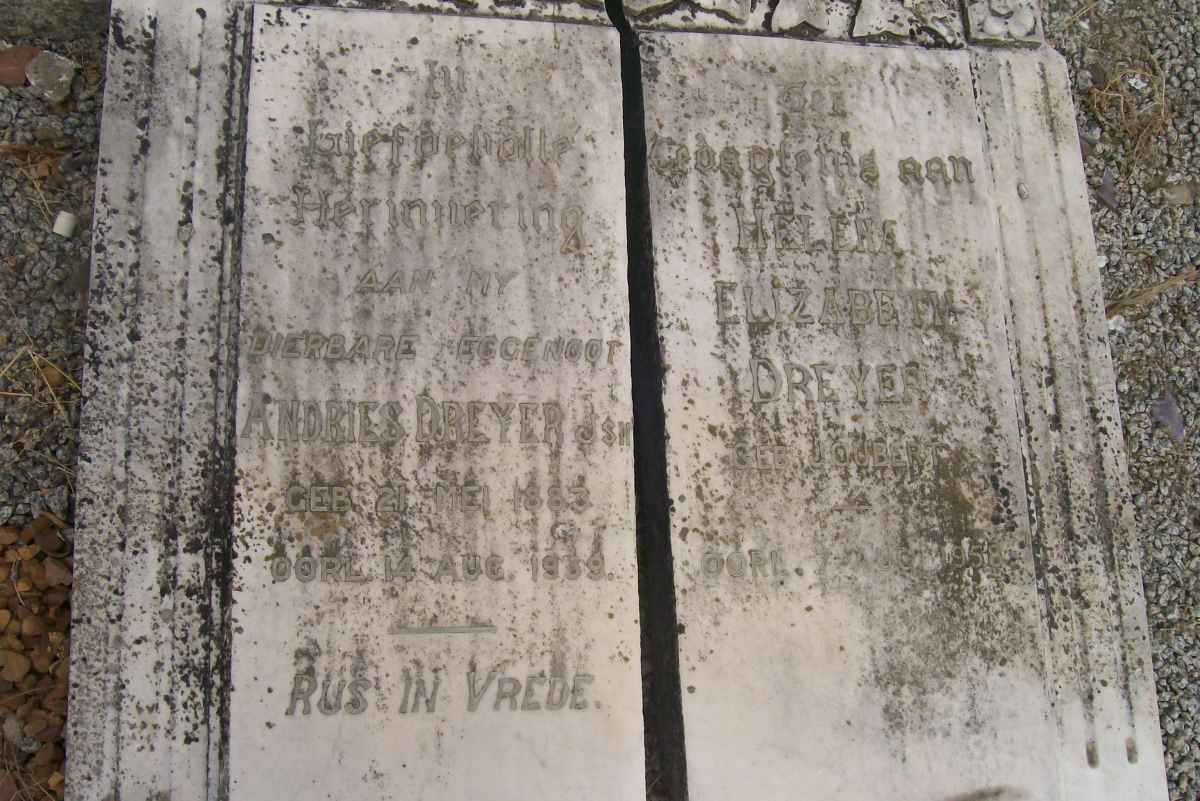 In
Liefdevolle
Herinnering
AAN MY
DIERBARE EGGENOOT
ANDRIES DREYER JSN
GEB. 21 MEI 1883.
OORL. 14 AUG. 1939.
RUS IN VREDE.
Ter
Gedagtenis aan
HELENA
ELIZABETH
DREYER
GEB JOUBERT
OORL.